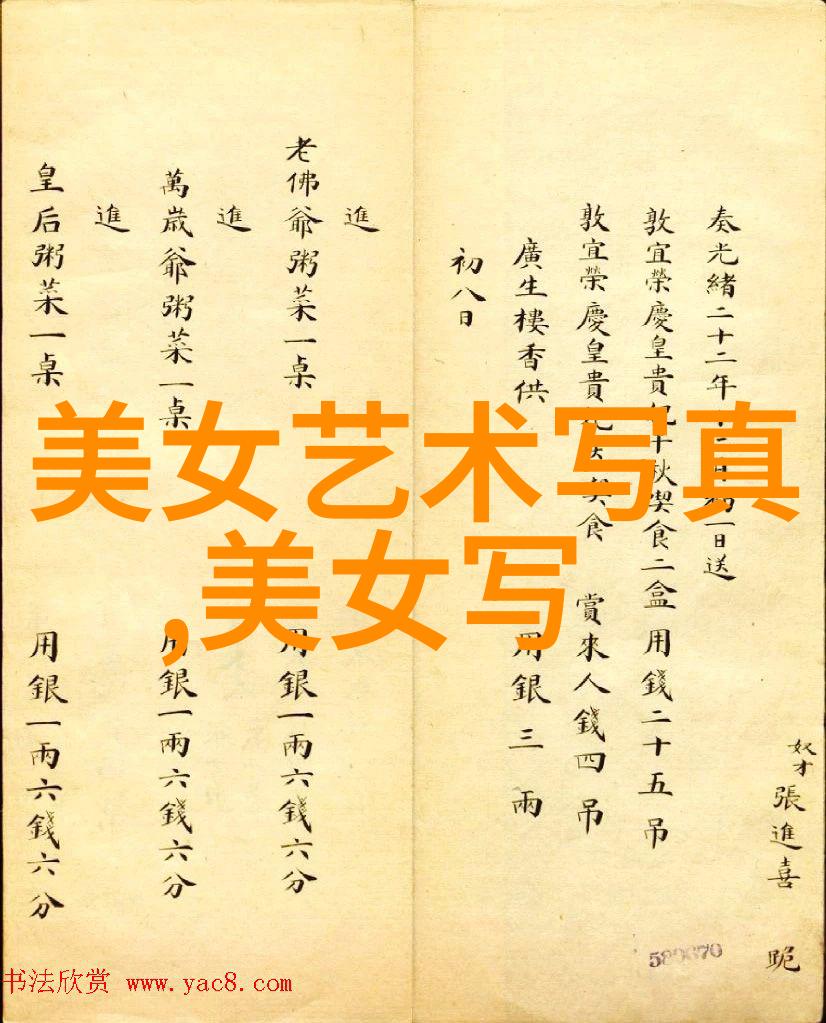 奴才張進喜 跪
奏光緒二十二年一日送
敦宜榮慶皇貴妃千秋喫食二盒用錢二十五吊
敦宜榮慶皇貴食 賞來人錢四吊
廣生樓香供 用銀三兩
初八日
進
老佛爺粥菜一桌 用銀一兩六錢六分
進
萬歲爺粥菜一桌 用銀一兩六錢六分
進
皇后粥菜一桌 用銀一兩六錢六分
美女艺术写真
,美女写
书法欣赏 www.yac8.com